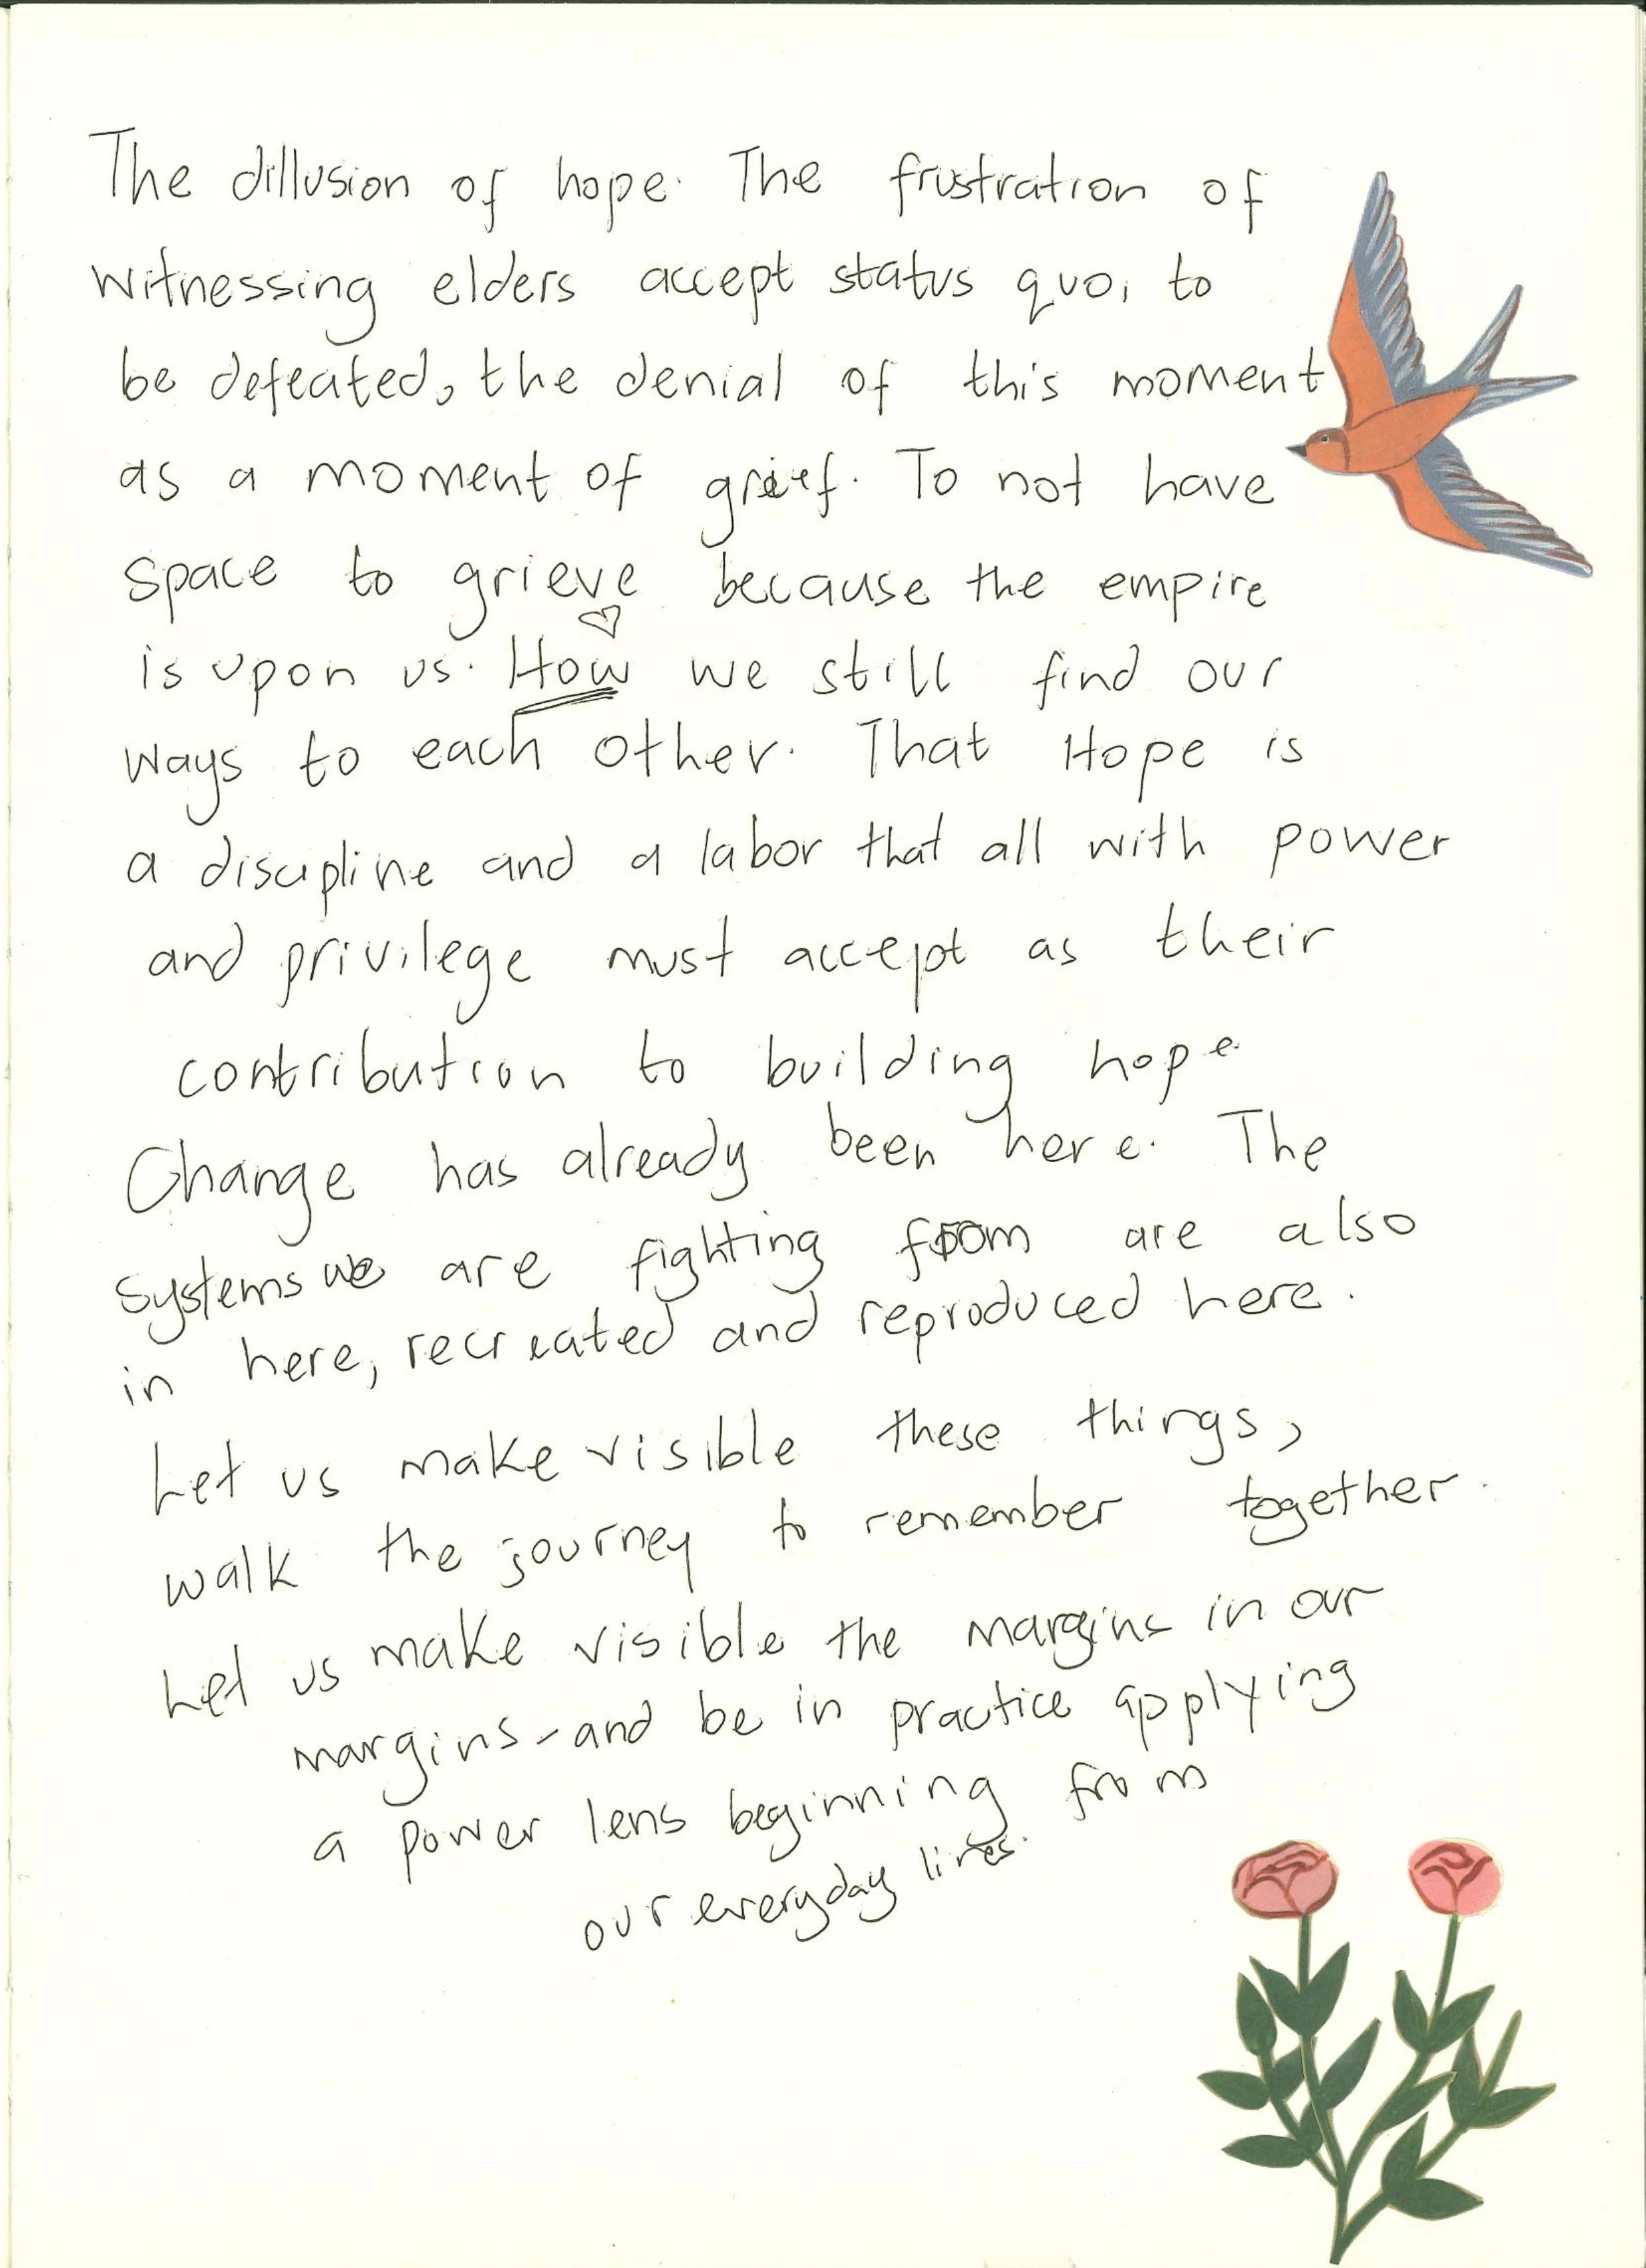 The dillusion of hope. The frustration of
witnessing elders accept status quo, to
be defeated, the denial of this moment
as a moment of grief. To not have
space to grieve because the empire
is upon us. How we still find our
ways to each other. That Hope is
a discipline and a labor that all with power
and privilege must accept as their
contribution to building hope.
Change has already been here. The
systems we are fighting from are also
in here, recreated and reproduced here.
Let us make visible these things,
walk the journey to remember together.
Let us make visible the margins in our
margins - and be in practice applying
a power lens beginning from
our everyday lives.